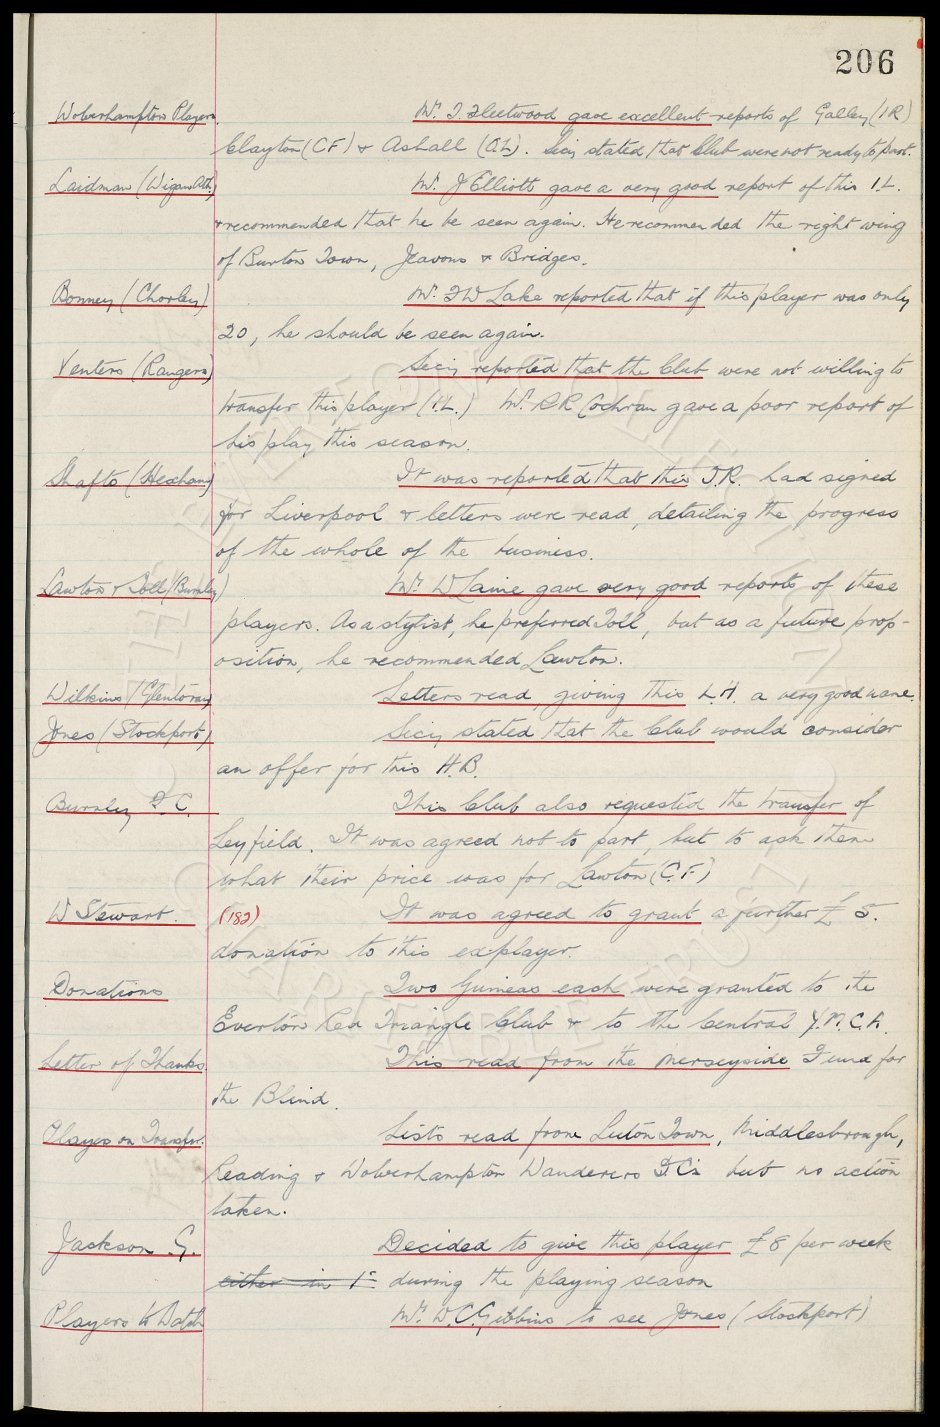 206
Wolverhampton Players. Mr. T. Fleetwood gave excellent reports of Galley (I R)
Clayton (CF) & Ashall (O.L). Secy stated that Club were not ready to part.
Laidman (Wigan Ath.) Mr. J Elliott gave a very good report of this I.L.
& recommended that he be seen again. He recommended the right wing
of Burton Town, Jeavons & Bridges.
Bonney (Chorley) Mr. F W Lake reported that if this player was only
20, he should be seen again.
Venters (Rangers) Secy reported that the Club were not willing to
transfer this player (I.L.) Mr. R R Cochran gave a poor report of
his play this season.
Shafto (Hexham) It was reported that this I.R. had signed
for Liverpool & letters were read, detailing the progress
of the whole of the business.
Lawton & Toll (Burnley) Mr. W Laine gave very good reports of these
players. As a stylist, he preferred Toll, but as a future prop-
osition, he recommended Lawton.
Wilkins (Glentoran) Letters read, giving this L.H. a very good name.
Jones (Stockport) Secy stated that the Club would consider
an offer for this H.B.
Burnley F.C. This Club also requested the transfer of
Leyfield. It was agreed not to part, but to ask them
what their price was for Lawton (C.F.)
W Stewart. (182) It was agreed to grant a further £5.
donation to this explayer.
Donations Two Guineas each were granted to the
Everton Red Triangle Club & to the Central Y.M.C.A.
Letter of Thanks This read from the Merseyside Fund for
the Blind.
Players on Transfer. Lists read from Luton Town, Middlesbrough,
Reading & Wolverhampton Wanderers F.C's but no action
taken.
Jackson G. Decided to give this player £8 per week
either in 1st during the playing season
Players to Watch Mr. W.C. Gibbins to see Jones (Stockport)
EVERTON COLLECTION
CHARITABLE TRUST
THE